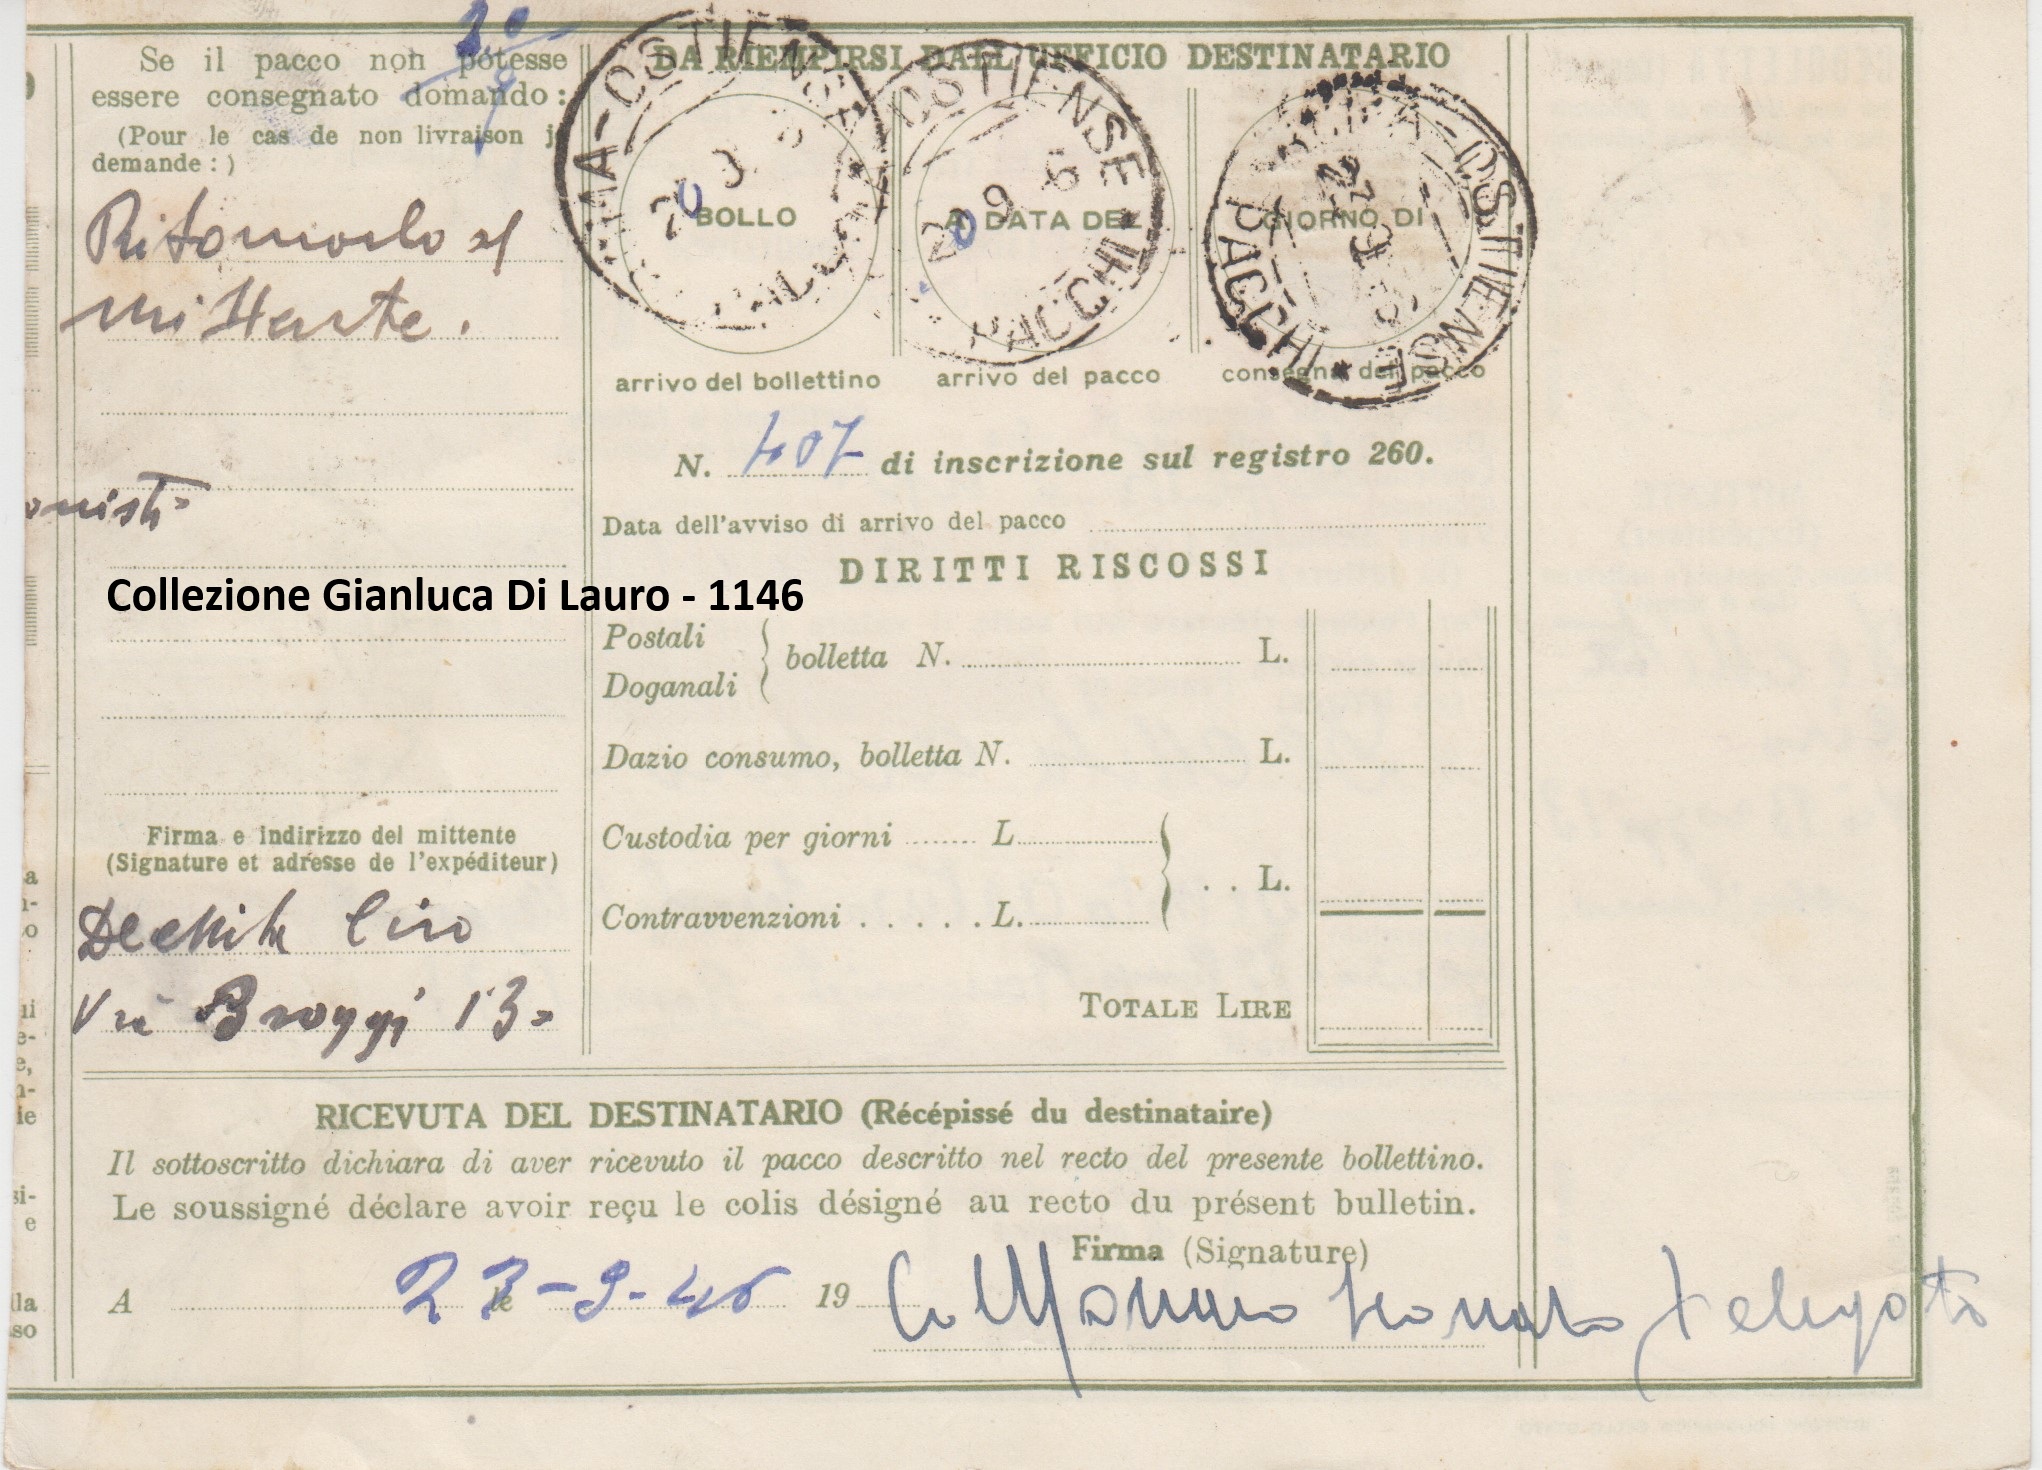 Se il pacco non potesse
essere consegnato domando:
(Pour le cas de non livraison j
demande:)
mittente.
onisti
Firma e indirizzo del mittente
(Signature et adresse de l'expéditeur)
Ciro
Via Broggi 13
DA RIEMPIRSI DALL'UFFICIO DESTINATARIO
MA-OSTIENSE
OSTIENSE
PACCHI
20 9
OSTIENSE
PACCHI
BOLLO A DATA DEL GIORNO DI
arrivo del bollettino arrivo del pacco consegna del pacco
N. 407 di inscrizione sul registro 260.
Data dell'avviso di arrivo del pacco
DIRITTI RISCOSSI
Collezione Gianluca Di Lauro - 1146
Postali
Doganali
bolletta N. L.
Dazio consumo, bolletta N. L.
Custodia per giorni L.
Contravvenzioni L.
L.
TOTALE LIRE
RICEVUTA DEL DESTINATARIO (Récépissé du destinataire)
Il sottoscritto dichiara di aver ricevuto il pacco descritto nel recto del presente bollettino.
Le soussigné déclare avoir reçu le colis désigné au recto du présent bulletin.
Firma (Signature)
A le 19